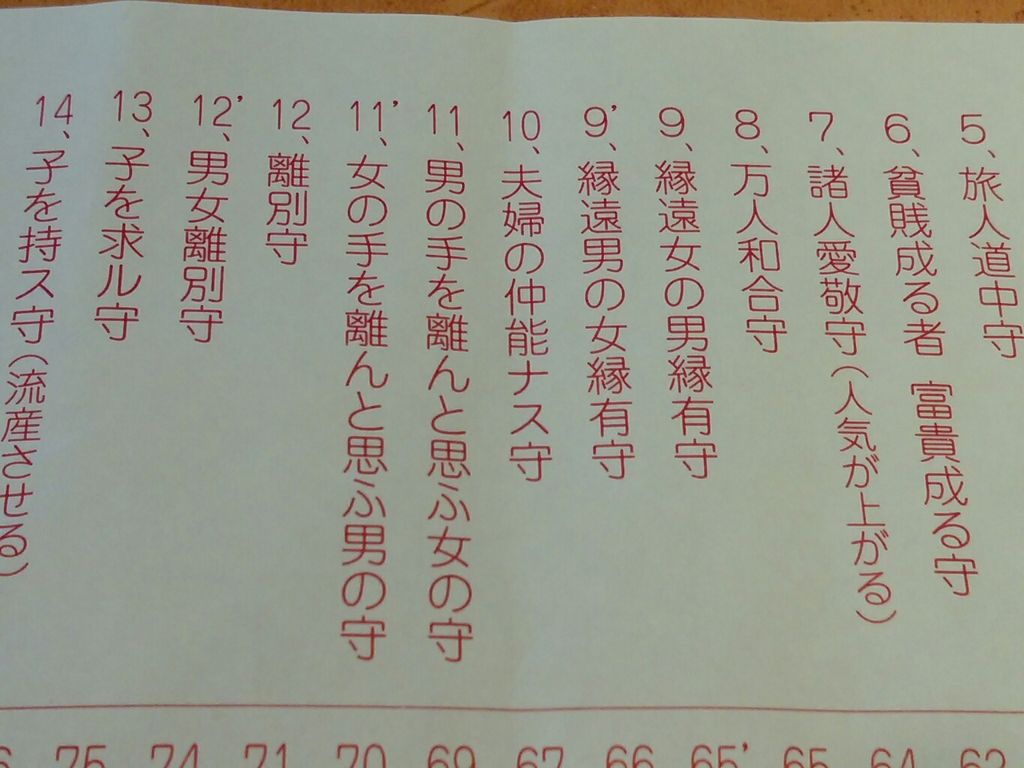 5、旅人道中守
6、貧賎成る者 富貴成る守
7、諸人愛敬守(人気が上がる)
8、万人和合守
9、縁遠女の男縁有守
9’、縁遠男の女縁有守
10、夫婦の仲能ナス守
11、男の手を離んと思ふ女の守
11’、女の手を離んと思ふ男の守
12、離別守
12’、男女離別守
13、子を求ル守
14、子を持ス守(流産させる)
62
64
65
65’
66
67
69
70
71
74
75